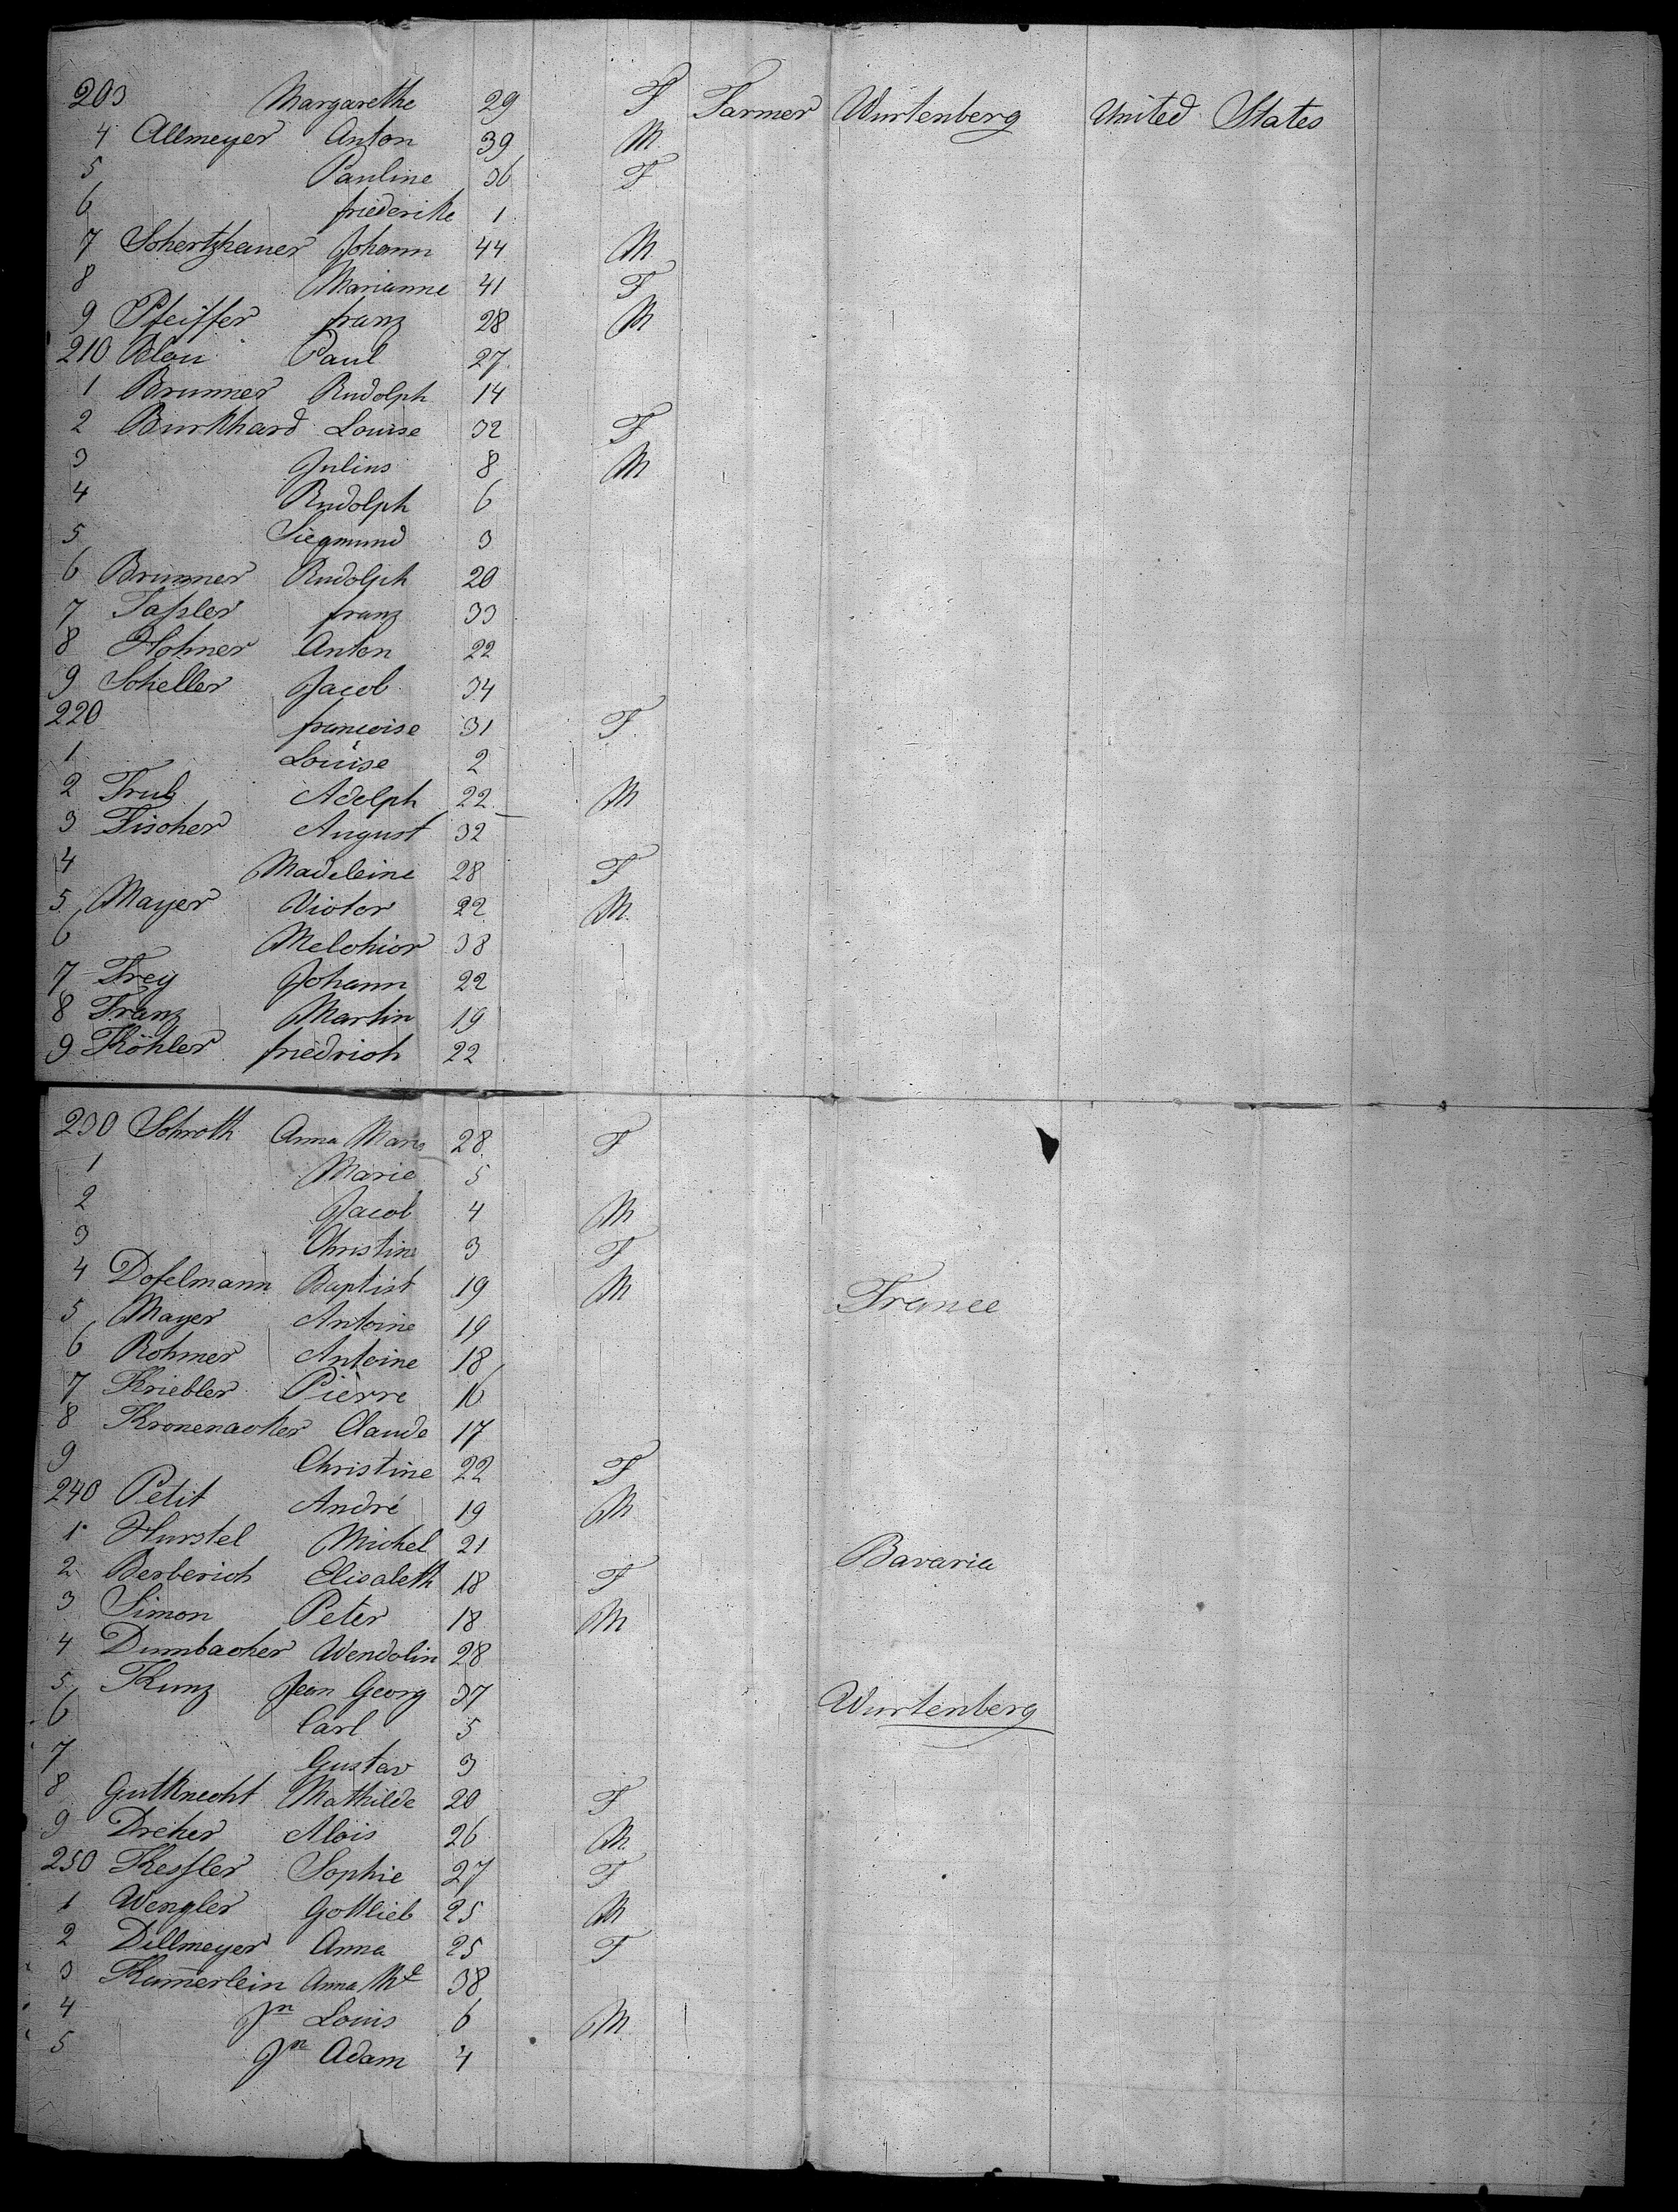 203 Margarethe 29 F Farmer Wurtenberg United States
4 Allmeyer Anton 39 M
5 Pauline 36 F
6 friederike 1
7 Schertzhauer Johann 44 M
8 Marianne 41 F
9 Pfeiffer franz 28 M
210 Blau Paul 27
1 Brunner Rudolph 14
2 Burkhard Louise 32 F
3 Julius 8 M
4 Rudolph 6
5 Siegmund 3
6 Brunner Rudolph 20
7 franz 33
8 Hohner Anton 22
9 Scheller Jacob 34
220 francoise 31 F
1 Louise 2
2 Trub Adolph 22 M
3 Fischer August 32
4 Madeleine 28 F
5 Mayer Victor 22 M
6 Melchior 38
7 Frey Johann 22
8 Franz Martin 19
9 Köhler friedrich 22
230 Schroth Anna Marie 28 F
1 Marie 5
2 Jacob 4 M
3 Christine 3 F
4 Dofelmann Baptist 19 M France
5 Mayer Antoine 19
6 Rohmer Antoine 18
7 Kriebler Pierre 16
8 Kronenacker Claude 17
9 Christine 22 F
240 Petit André 19 M
1 Hurstel Michel 21
2 Berberich Elisabeth 18 F Bavaria
3 Simon Peter 18 M
4 Dumbacher Wendolin 28
5 Kunz Jean Georg 37 Wurtenberg
6 Carl 5
7 Gustav 3
8 Gutknecht Mathilde 20 F
9 Dreher Alois 26 M
250 Kessler Sophie 27 F
1 Wengler Gottlieb 25 M
2 Dellmeyer Anna 25 F
3 Kam̅erlein Anna Me 38
4 Jn Louis 6 M
5 Jn Adam 4